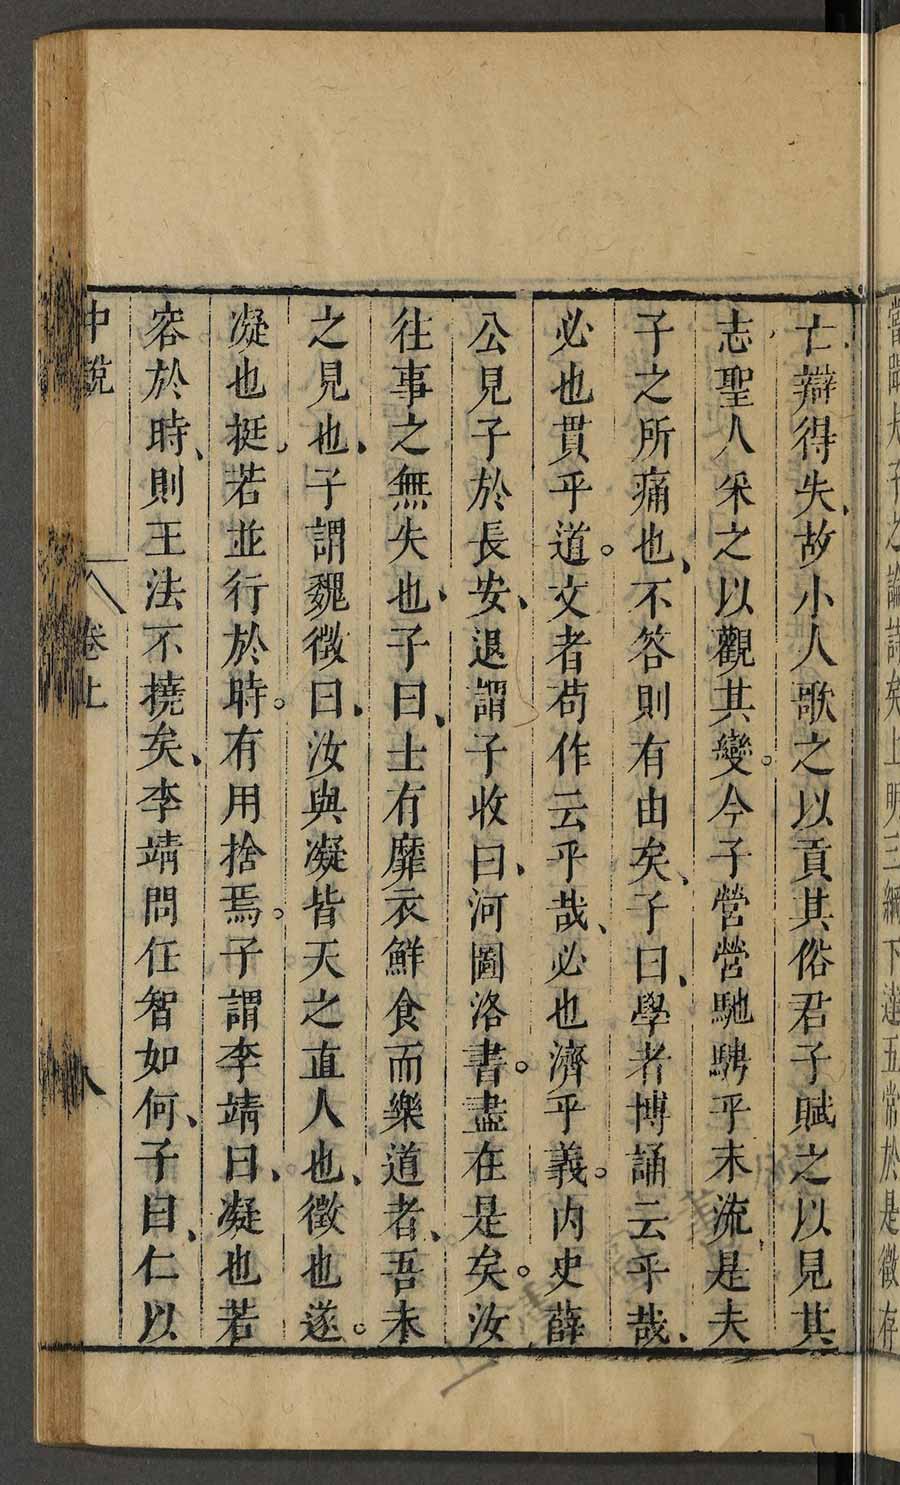 嘗聞夫子之論詩矣上明三綱下達五常於是徵存
亡辯得失故小人歌之以貢其俗君子賦之以見其
志聖人采之以觀其變。今子營營馳騁乎末流是夫
子之所痛也、不答則有由矣、子曰、學者博誦云乎哉、
必也貫乎道。文者苟作云乎哉、必也濟乎義。內史薛
公見子於長安、退謂子收曰、河圖洛書。盡在是矣。汝
往事之無失也、子曰、士有靡衣鮮食而樂道者、吾未
之見也、子謂魏徵曰、汝與凝皆天之直人也、徵也遂。
凝也挺。若並行於時。有用捨焉。子謂李靖曰、凝也若
容於時、則王法不撓矣、李靖問任智如何、子曰、仁以
中說
卷上
八